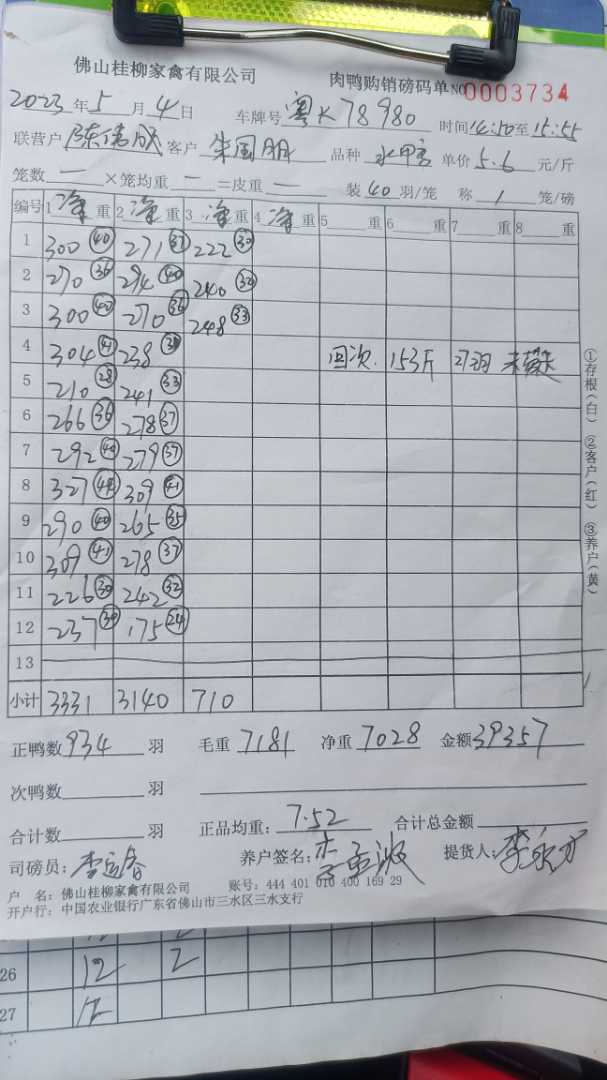 佛山桂柳家禽有限公司 肉鸭购销磅码单 NO 0003734
2023年5月4日 车牌号 粤K78980 时间14:50至15:55
联营户 客户 朱国朋 品种 单价5.6元/斤
笼数 一 ×笼均重 一 =皮重 一 装40羽/笼 称1笼/磅
编号 1净重 2净重 3净重 4净重 5重 6重 7重 8重
1 300 ㊵ 271 ㊲ 222 ㉚
2 270 ㊱ 294 ㊵ 240 ㉜
3 300 ㊵ 270 ㊱ 248 ㉝
4 304 ㊶ 238 回次 153斤 27羽
5 210 ㉘ 241 ㉝
6 266 ㊱ 278 ㊲
7 292 ㊵ 279 ㊲
8 327 ㊹ 309 ㊶
9 290 ㊵ 265 ㉟
10 309 ㊶ 278 ㊲
11 226 ㉚ 242 ㉜
12 237 ㉚ 175 ㉔
13
小计 3331 3140 710
正鸭数934羽 毛重7181 净重7028 金额39357
次鸭数 羽
合计数 羽 正品均重:7.52 合计总金额
司磅员: 养户签名: 提货人:
户 名:佛山桂柳家禽有限公司 账号:444 401 010 400 169 29
开户行:中国农业银行广东省佛山市三水区三水支行
①存根(白) ②客户(红) ③养户(黄)
12 2
26 12 2
27 12